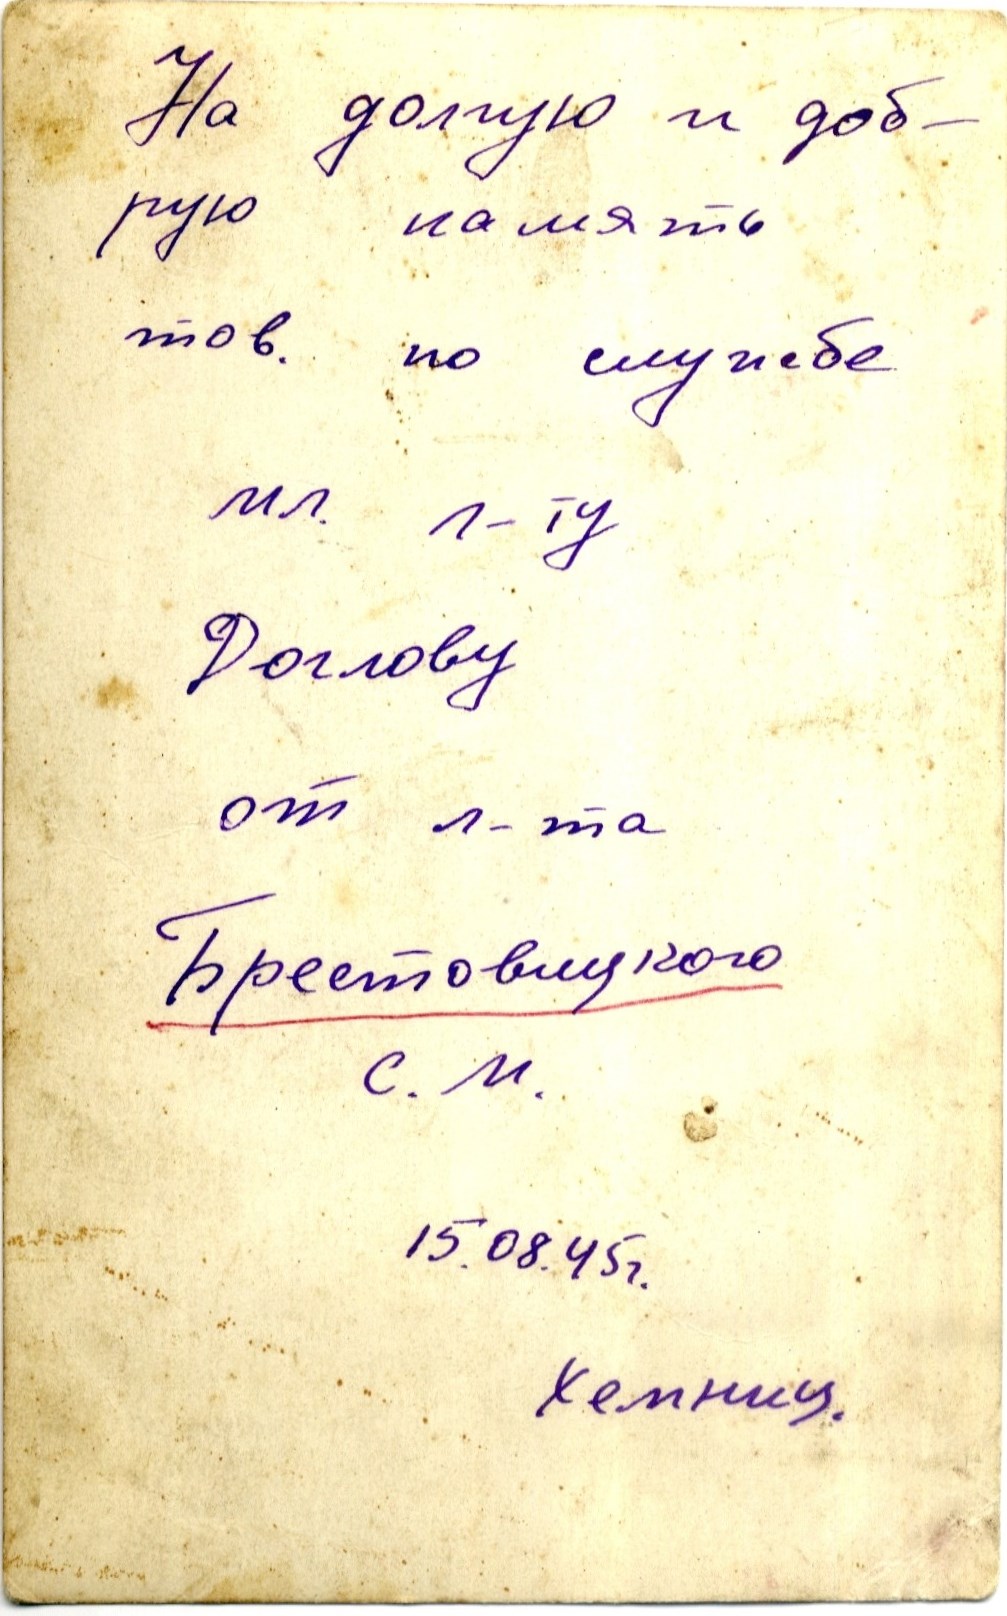 На долгую и доб-
рую память
тов. по службе
мл. л-ту
Доглову
от л-та
Брестовицкого
С. М.
15.08.45г.
Хемниц.